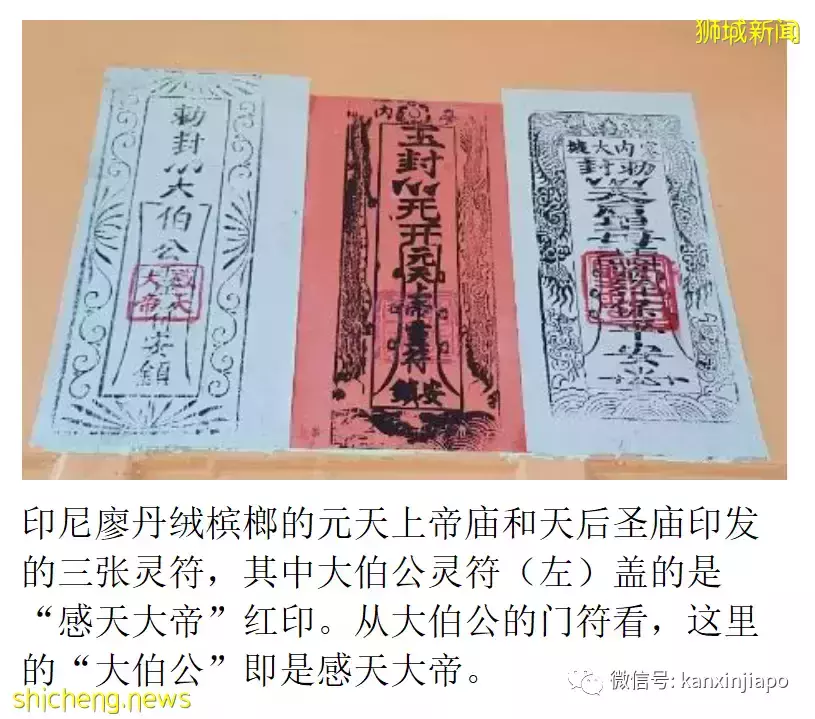 狮城新闻
勅封
大伯公
安鎮
感天
大帝
玉封
元天上帝靈符
安鎮
勅封
平安
印尼廖丹绒槟榔的元天上帝庙和天后圣庙印发
的三张灵符，其中大伯公灵符（左）盖的是
“感天大帝”红印。从大伯公的门符看，这里
的“大伯公”即是感天大帝。
微信号: kanxinjiapo
shicheng.news